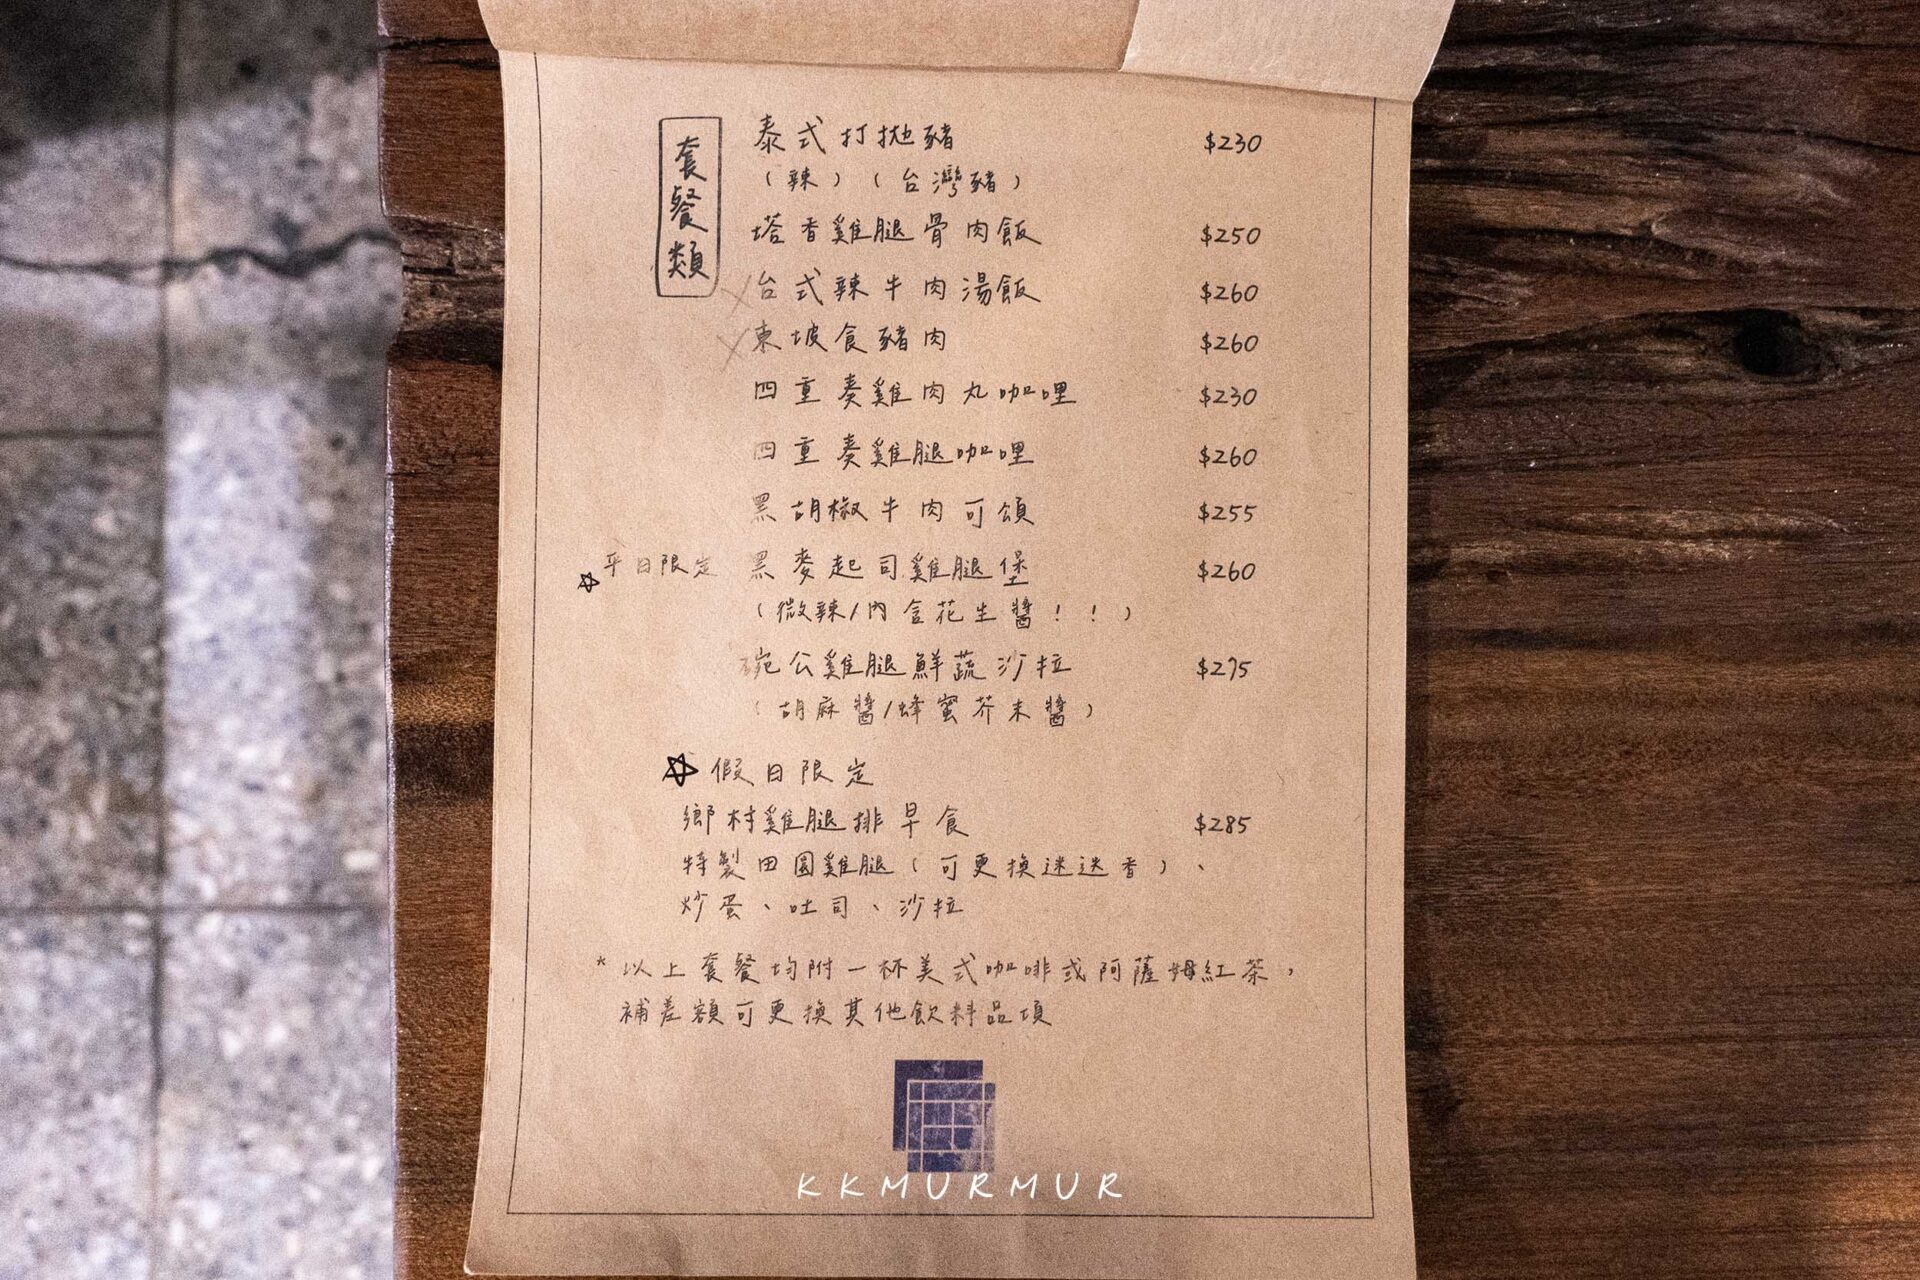 套餐類
泰式打拋豬 $230
（辣）（台灣豬）
塔香雞腿骨肉飯 $250
台式辣牛肉湯飯 $260
東坡食豬肉 $260
四重奏雞肉丸咖哩 $230
四重奏雞腿咖哩 $260
黑胡椒牛肉可頌 $255
平日限定 黑麥起司雞腿堡 $260
（微辣/內含花生醬！！）
碗公雞腿鮮蔬沙拉 $275
（胡麻醬/蜂蜜芥末醬）
假日限定
鄉村雞腿排早食 $285
特製田園雞腿（可更換迷迭香）、
炒蛋、吐司、沙拉
*以上套餐均附一杯美式咖啡或阿薩姆紅茶，
補差額可更換其他飲料品項
KKMURMUR